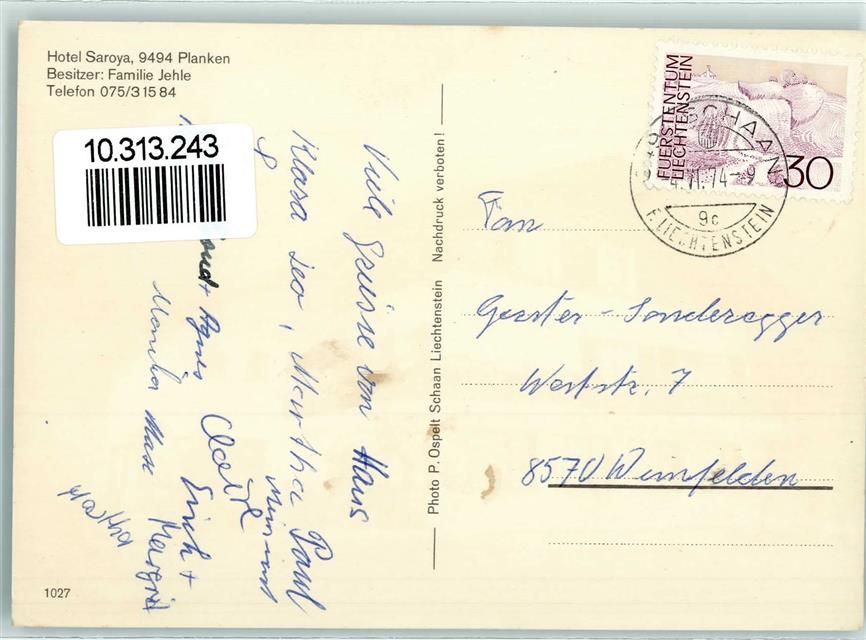 Hotel Saroya, 9494 Planken
Besitzer: Familie Jehle
Telefon 075/3 15 84
10.313.243
Viele Grüsse von Hans
Klara Leo, Martha Paul
+ Agnes Claire
Erich +
Margrit
Monika Max
Martha
Photo P. Ospelt Schaan Liechtenstein Nachdruck verboten!
FUERSTENTUM
LIECHTENSTEIN
30
SCHAAN
VI. 74-9
9c
F. LIECHTENSTEIN
Fam
Gerster - Sonderegger
Weststr. 7
8570 Weinfelden
1027